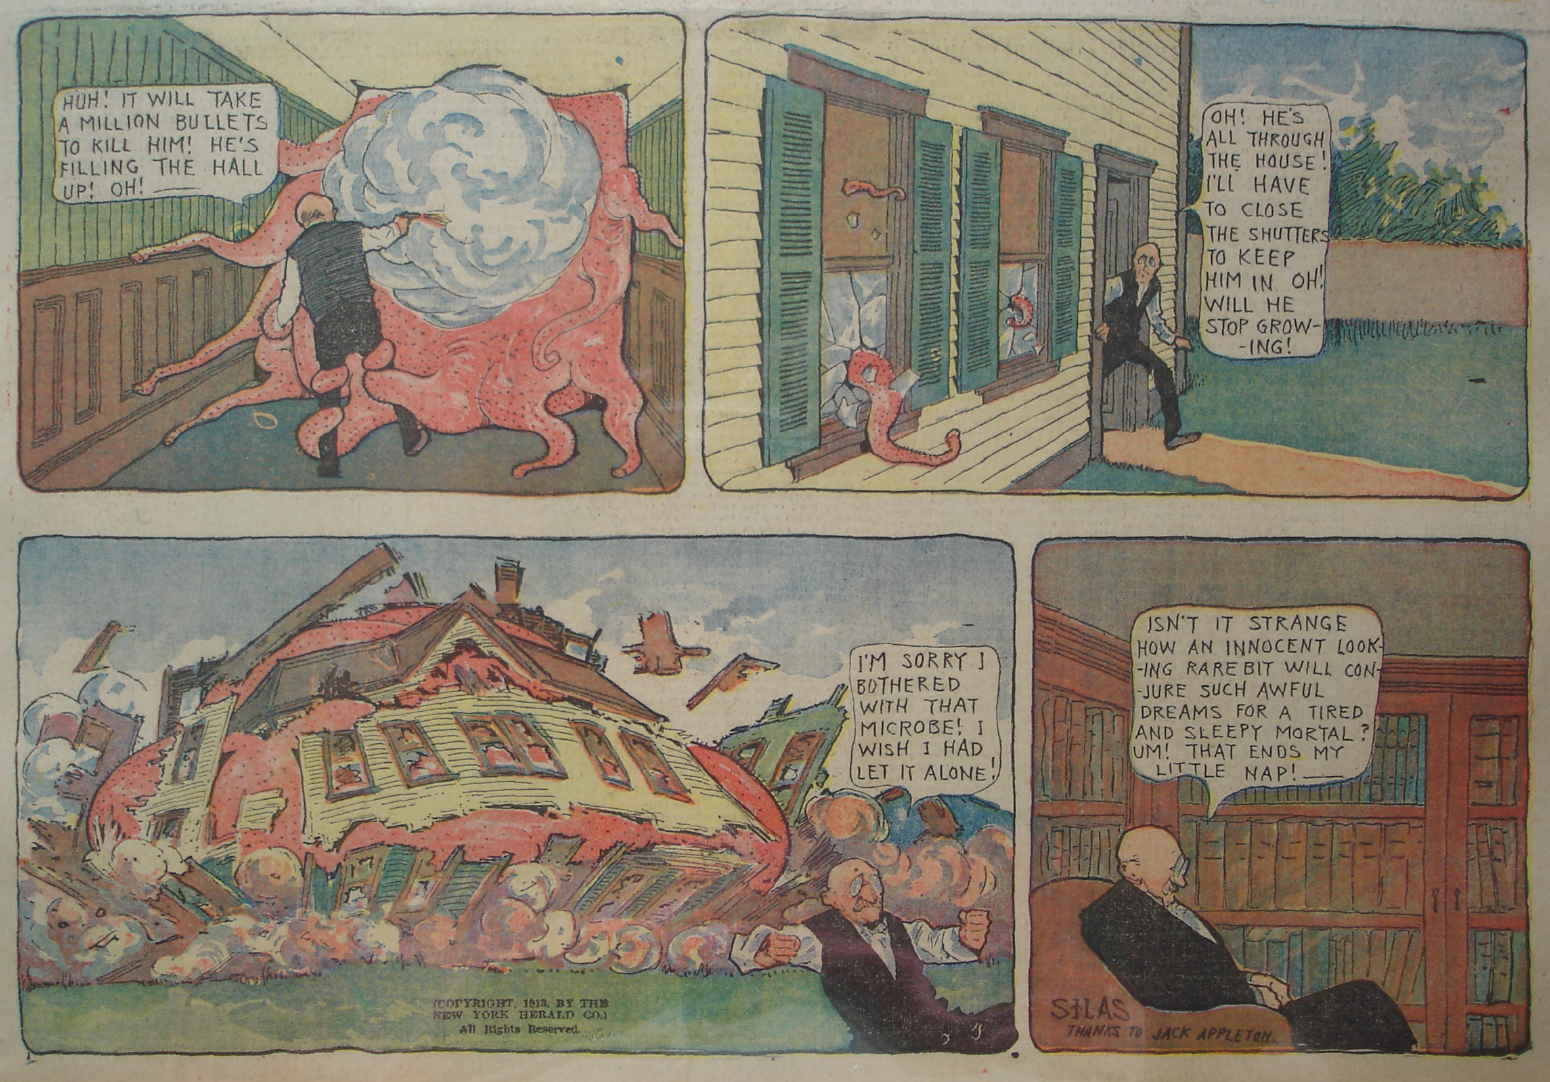 HUH! IT WILL TAKE
A MILLION BULLETS
TO KILL HIM! HE'S
FILLING THE HALL
UP! OH!
OH! HE'S
ALL THROUGH
THE HOUSE!
I'LL HAVE
TO CLOSE
THE SHUTTERS
TO KEEP
HIM IN OH!
WILL HE
STOP GROW-
-ING!
I'M SORRY I
BOTHERED
WITH THAT
MICROBE! I
WISH I HAD
LET IT ALONE!
(COPYRIGHT, 1913, BY THE
NEW YORK HERALD CO.)
All Rights Reserved.
ISN'T IT STRANGE
HOW AN INNOCENT LOOK-
-ING RAREBIT WILL CON-
-JURE SUCH AWFUL
DREAMS FOR A TIRED
AND SLEEPY MORTAL?
UM! THAT ENDS MY
LITTLE NAP!
SILAS
THANKS TO JACK APPLETON.